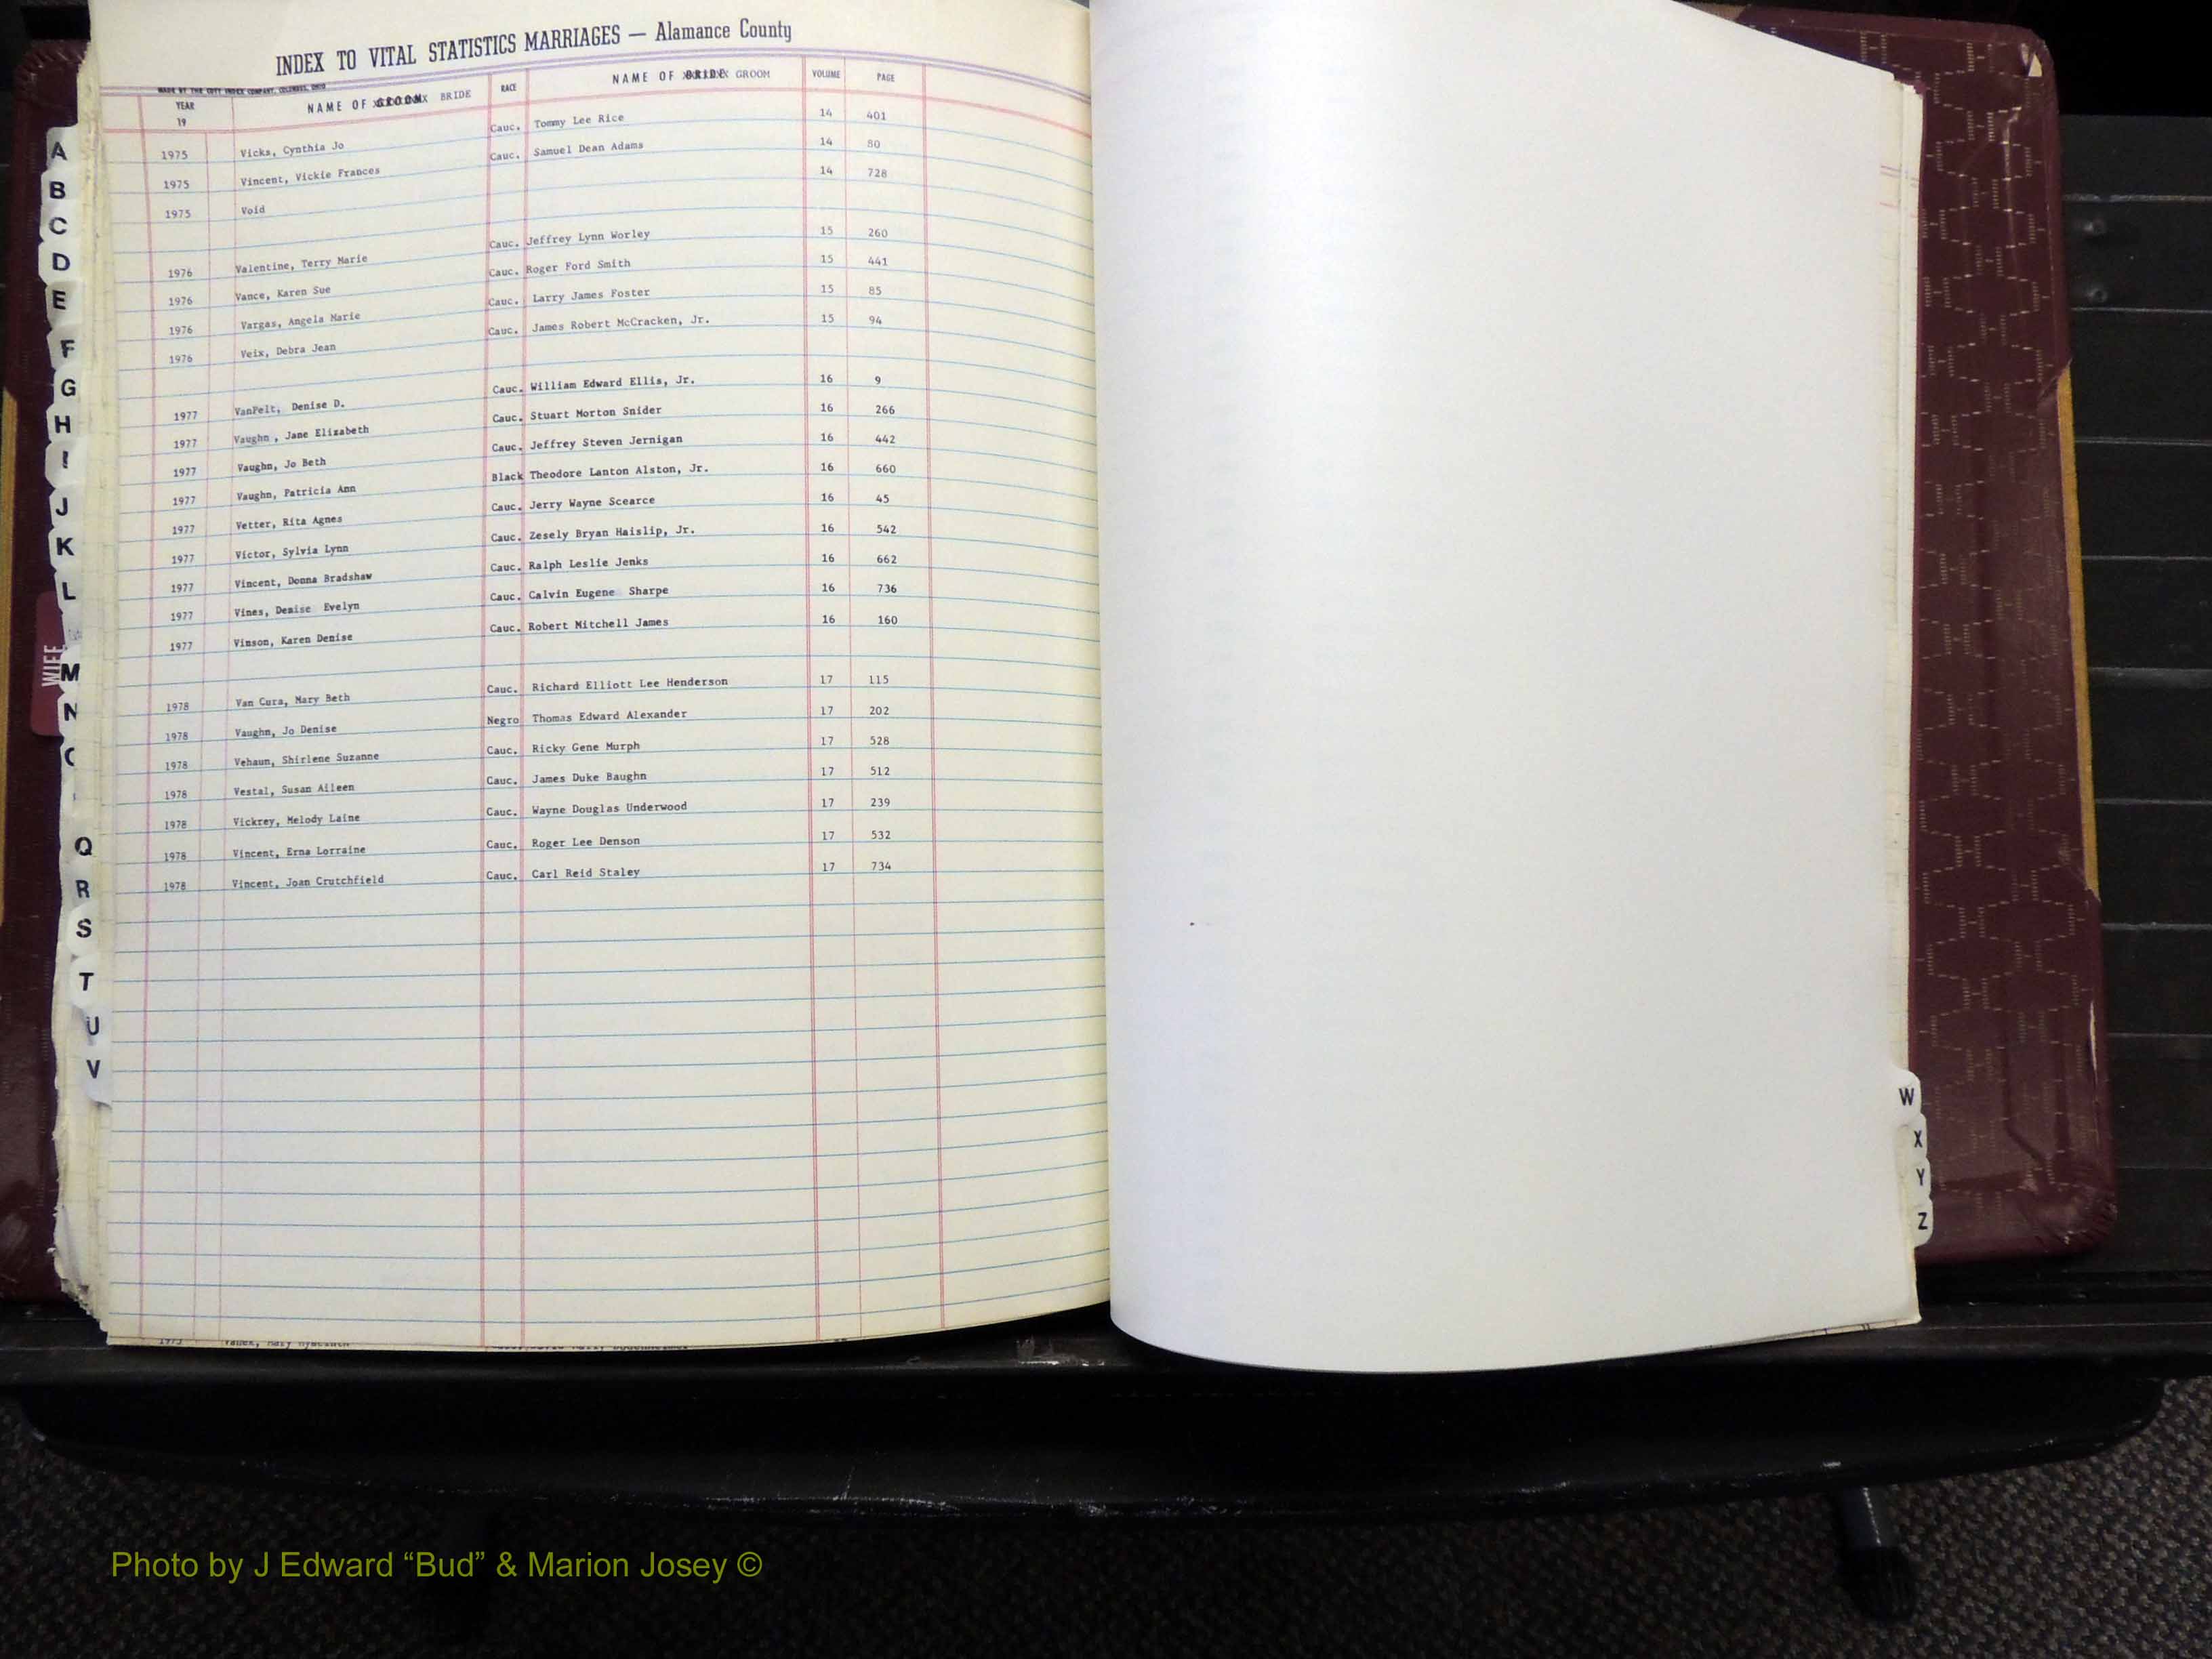 INDEX TO VITAL STATISTICS MARRIAGES — Alamance County
MADE BY THE COTT INDEX COMPANY, COLUMBUS, OHIO
YEAR 19 NAME OF GROOM BRIDE RACE NAME OF BRIDE GROOM VOLUME PAGE
1975 Vicks, Cynthia Jo Cauc. Tommy Lee Rice 14 401
1975 Vincent, Vickie Frances Cauc. Samuel Dean Adams 14 80
1975 Void 14 728
1976 Valentine, Terry Marie Cauc. Jeffrey Lynn Worley 15 260
1976 Vance, Karen Sue Cauc. Roger Ford Smith 15 441
1976 Vargas, Angela Marie Cauc. Larry James Foster 15 85
1976 Veix, Debra Jean Cauc. James Robert McCracken, Jr. 15 94
1977 VanPelt, Denise D. Cauc. William Edward Ellis, Jr. 16 9
1977 Vaughn, Jane Elizabeth Cauc. Stuart Morton Snider 16 266
1977 Vaughn, Jo Beth Cauc. Jeffrey Steven Jernigan 16 442
1977 Vaughn, Patricia Ann Black Theodore Lanton Alston, Jr. 16 660
1977 Vetter, Rita Agnes Cauc. Jerry Wayne Scearce 16 45
1977 Victor, Sylvia Lynn Cauc. Zesely Bryan Haislip, Jr. 16 542
1977 Vincent, Donna Bradshaw Cauc. Ralph Leslie Jenks 16 662
1977 Vines, Denise Evelyn Cauc. Calvin Eugene Sharpe 16 736
1977 Vinson, Karen Denise Cauc. Robert Mitchell James 16 160
1978 Van Cura, Mary Beth Cauc. Richard Elliott Lee Henderson 17 115
1978 Vaughn, Jo Denise Negro Thomas Edward Alexander 17 202
1978 Vehaun, Shirlene Suzanne Cauc. Ricky Gene Murph 17 528
1978 Vestal, Susan Aileen Cauc. James Duke Baughn 17 512
1978 Vickrey, Melody Laine Cauc. Wayne Douglas Underwood 17 239
1978 Vincent, Erna Lorraine Cauc. Roger Lee Denson 17 532
1978 Vincent, Joan Crutchfield Cauc. Carl Reid Staley 17 734
A
B
C
D
E
F
G
H
I
J
K
L
WIFE
M
N
Q
R
S
T
U
V
W
X
Y
Z
Photo by J Edward “Bud” & Marion Josey ©